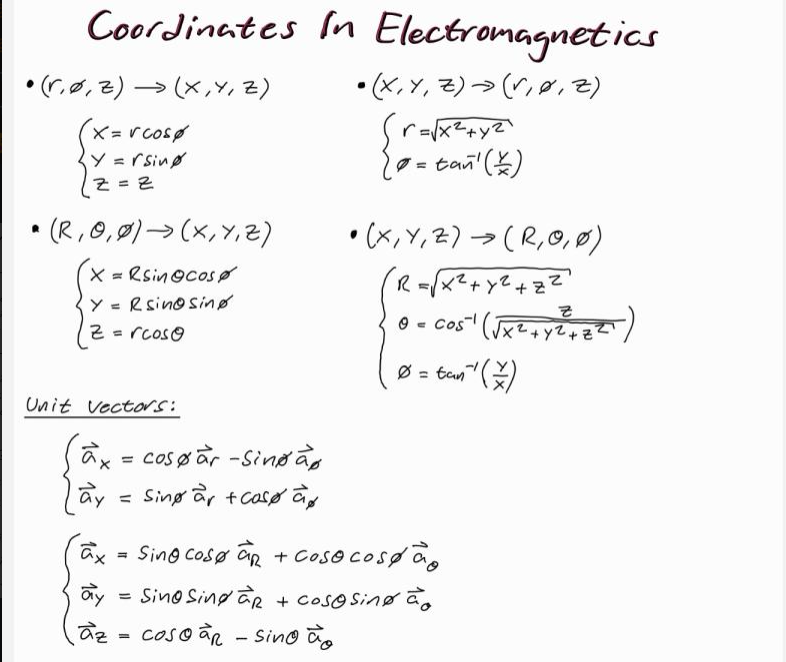 Coordinates In Electromagnetics
• (r, ø, z) → (x, y, z)
x = rcosø
y = rsinø
z = z
• (x, y, z) → (r, ø, z)
r = √x²+y²
ø = tan⁻¹(y/x)
• (R, θ, ø) → (x, y, z)
x = Rsinθcosø
y = Rsinθsinø
z = rcosθ
• (x, y, z) → (R, θ, ø)
R = √x²+y²+z²
θ = cos⁻¹(z/√x²+y²+z²)
ø = tan⁻¹(y/x)
Unit vectors:
a⃗x = cosø a⃗r - sinø a⃗ø
a⃗y = sinø a⃗r + cosø a⃗ø
a⃗x = sinθ cosø a⃗R + cosθ cosø a⃗θ
a⃗y = sinθ sinø a⃗R + cosθ sinø a⃗θ
a⃗z = cosθ a⃗R - sinθ a⃗θ